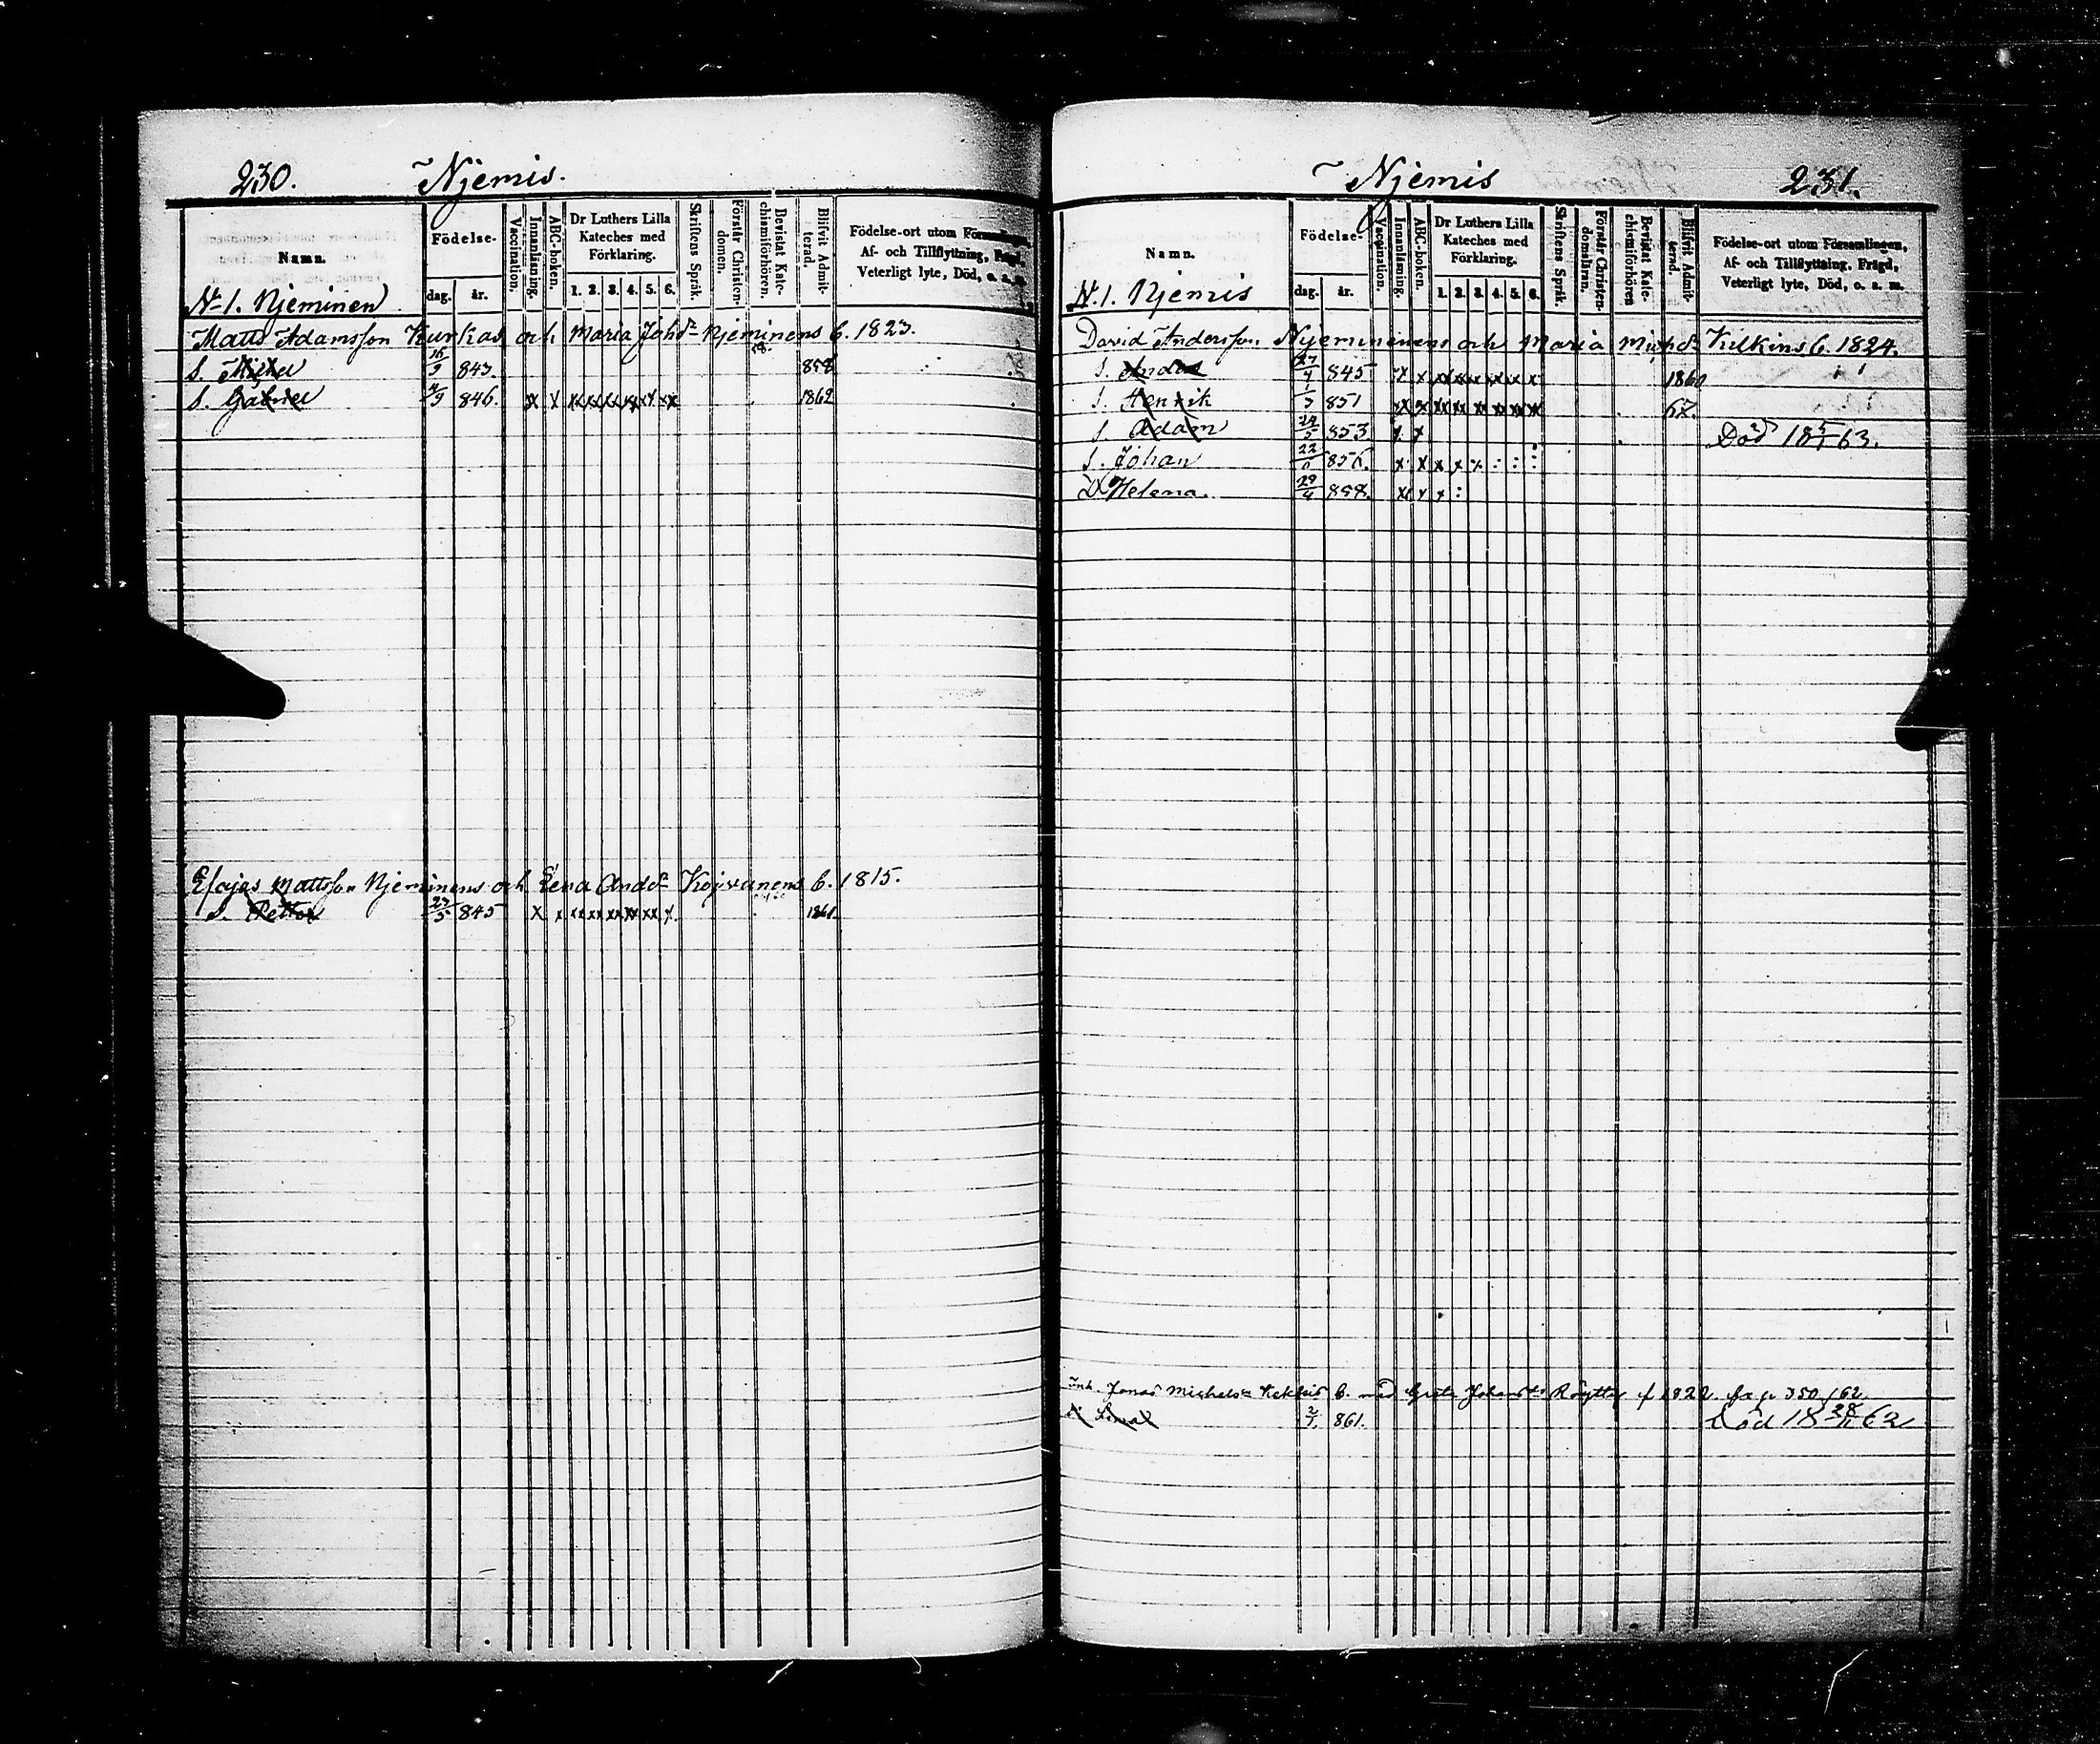 230. Njemis.
Namn.
Födelse-
dag. år.
Vaccination.
Innanläsning.
ABC-boken.
Dr Luthers Lilla
Kateches med
Förklaring.
1. 2. 3. 4. 5. 6.
Skriftens Språk.
Förstår Christen-
domen.
Bevistat Kate-
chismiförhören.
Blifvit Admit-
terad.
Födelse-ort utom Församlingen,
Af- och Tillflyttning, Frägd,
Veterligt lyte, Död, o. s. m.
N. 1. Njeminen
Matts Adamsson Kurkas och Maria Johdr Njeminens b. 1823.
S. Michel 16/9 843. 858
S. Gabriel 4/9 846. x x xx xx xx xx xx xx 1862
Esajas Mattsson Njeminens och Lena Andr Kojvunens b. 1815.
S. Petter 23/5 845 x x xx xx xx xx xx x. 1861
Njemis 231.
Namn.
Födelse-
dag. år.
Vaccination.
Innanläsning.
ABC-boken.
Dr Luthers Lilla
Kateches med
Förklaring.
1. 2. 3. 4. 5. 6.
Skriftens Språk.
Förstår Christen-
domsläran.
Bevistat Kate-
chismiförhören
Blifvit Admit-
terad.
Födelse-ort utom Församlingen,
Af- och Tillflyttning, Frägd,
Veterligt lyte, Död, o. s. m.
N. 1. Njemis
David Andersson Njeminenens och Maria Michdr Kilkins b. 1824.
S. Anders 27/4 845 x x xx xx xx xx xx x 1860
S. Henrik 1/3 851 x x xx xx xx xx xx xx 67.
S. Adam 24/5 853 x x Död 18 5/1 63.
S. Johan 22/6 856. x x x x x : : :
D Helena. 29/4 858. x x x :
Inh. Jonas Michelsn b. med Greta Johansdr f 1822. fr p 350 /62
861. Död 18 28/11 62